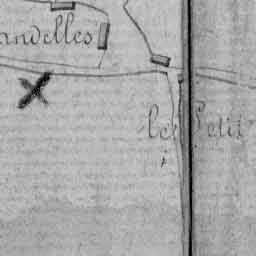 andelles
les Petit